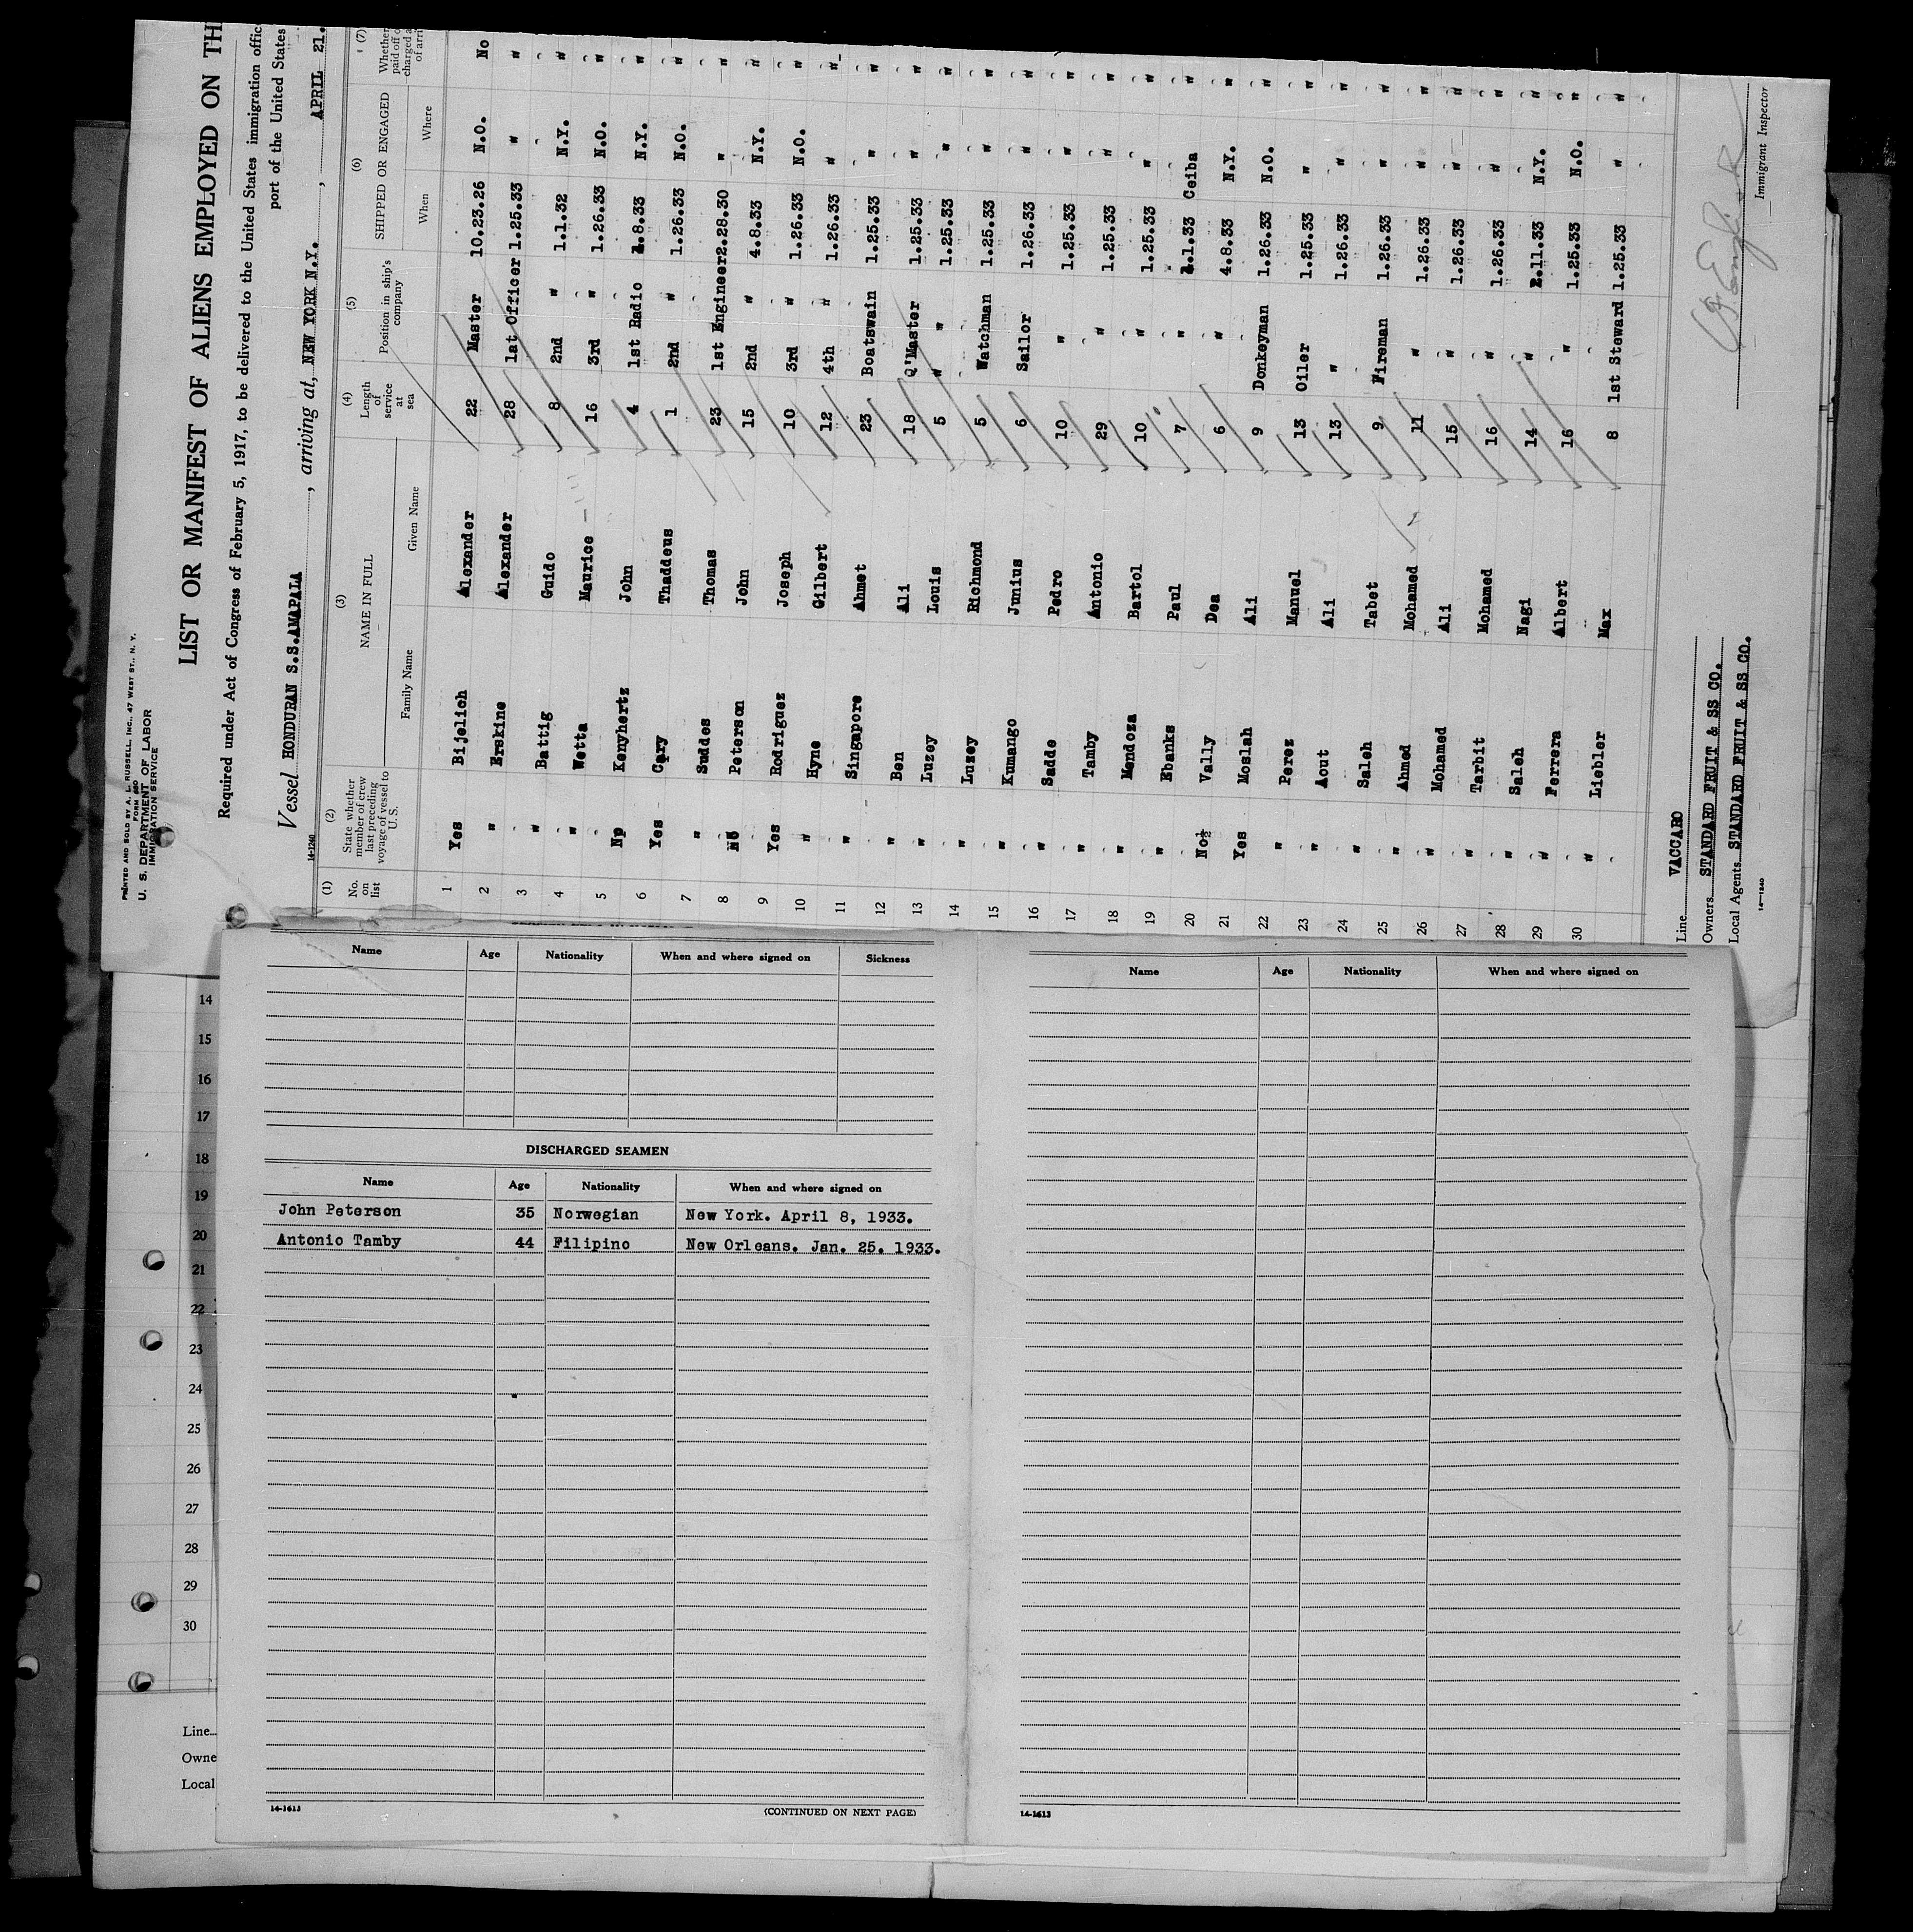 PRINTED AND SOLD BY A. L. RUSSELL, INC., 47 WEST ST., N. Y.
FORM 680
U. S. DEPARTMENT OF LABOR
IMMIGRATION SERVICE
LIST OR MANIFEST OF ALIENS EMPLOYED ON TH
Required under Act of Congress of February 5, 1917, to be delivered to the United States immigration offic
port of the United States
Vessel HONDURAN S.S.AMAPALA, arriving at, NEW YORK N.Y., APRIL 21.
14-1240
(1) (2) (3) (4) (5) (6) (7)
No. on list State whether member of crew last preceding voyage of vessel to U.S. NAME IN FULL Length of service at sea Position in ship's company SHIPPED OR ENGAGED Whether paid off o charged a of arri
Family Name Given Name When Where
1 Yes Bijelich Alexander 22 Master 10.23.26 N.O. No
2 " Erskine Alexander 28 1st Officer 1.25.33 " "
3 " Battig Guido 8 2nd " 1.1.32 N.Y. "
4 " Wetta Maurice 16 3rd " 1.26.33 N.O. "
5 No Kenyhertz John 4 1st Radio .8.33 N.Y. "
6 Yes Cary Thaddeus 1 2nd " 1.26.33 N.O. "
7 " Suddes Thomas 23 1st Engineer 2.28.30 " "
8 No Peterson John 15 2nd " 4.8.33 N.Y. "
9 Yes Rodriguez Joseph 10 3rd " 1.26.33 N.O. "
10 " Hyne Gilbert 12 4th " 1.26.33 " "
11 " Singapore Ahmet 23 Boatswain 1.25.33 " "
12 " Ben Ali 18 Q'Master 1.25.33 " "
13 " Luzey Louis 5 " " 1.25.33 " "
14 " Luzey Richmond 5 Watchman 1.25.33 " "
15 " Kumango Junius 6 Sailor 1.26.33 " "
16 " Sadde Pedro 10 " 1.25.33 " "
17 " Tamby Antonio 29 " 1.25.33 " "
18 " Mendoza Bartol 10 " 1.25.33 " "
19 " Ebanks Paul 7 " .1.33 Ceiba "
20 No½ Vally Dea 6 " 4.8.33 N.Y. "
21 Yes Moslah Ali 9 Donkeyman 1.26.33 N.O. "
22 " Perez Manuel 13 Oiler 1.25.33 " "
23 " Aout Ali 13 " 1.26.33 " "
24 " Saleh Tabet 9 Fireman 1.26.33 " "
25 " Ahmed Mohamed 11 " 1.26.33 " "
26 " Mohamed Ali 15 " 1.26.33 " "
27 " Tarbit Mohamed 16 " 1.26.33 " "
28 " Saleh Nagi 14 " 2.11.33 N.Y. "
29 " Ferrera Albert 16 " 1.25.33 N.O. "
30 Liebler Max 8 1st Steward 1.25.33 " "
Line VACCARO
Owners STANDARD FRUIT & SS CO.
Local Agents STANDARD FRUIT & SS CO.
Immigrant Inspector
14-1240
Name Age Nationality When and where signed on Sickness
DISCHARGED SEAMEN
Name Age Nationality When and where signed on
John Peterson 35 Norwegian New York. April 8, 1933.
Antonio Tamby 44 Filipino New Orleans. Jan. 25. 1933.
14-1613
(CONTINUED ON NEXT PAGE)
Name Age Nationality When and where signed on
14-1613
14
15
16
17
18
19
20
21
22
23
24
25
26
27
28
29
30
Line
Owne
Local